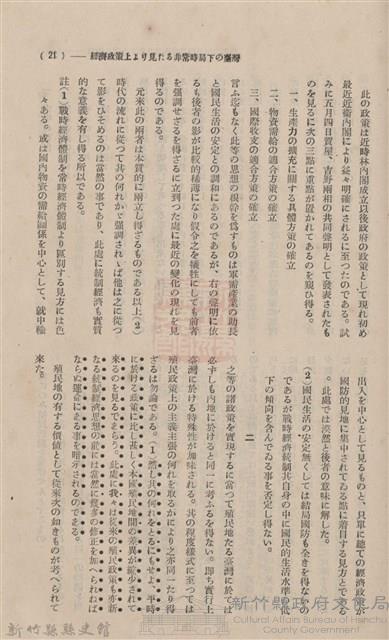 ( 21 )　――經濟政策上より見たる非常時局下の臺灣
此の政策は近時林內閣成立以後政府の政策として現れ初め
最近近衞內閣により益々明確にされるに至つたのである。試
みに五月四日賀屋、吉野兩相の共同聲明として發表されたも
のを見るに次の三點に重點が置かれてあるのを窺ひ得る。
一、生產力の擴充に關する具體方策の確立
二、物資需給の適合方策の確立
三、國際收支の適合方策の確立
言ふ迄もなく此等の思想の根幹を爲すものは軍需產業の助長
と國民生活の安定との調和にあるのであるが、右の聲明に依
るも後者の影が比較的稀薄になり假令之を犧牲にしても前者
を强調せざるを得ざるに立到つた處に最近の變化の現れを見
得るのである。
元來此の兩者は本質的に兩立し得ざるものである以上(2)
時代の流れに從つて其の何れかゞ强調されゝば他は之に從つ
て影をひそめるのは當然の事であり、此處に統制經濟も實質
的な意義を有し得る所以である。
註(1)戰時經濟體制を常時經濟體制より區別する見方には色
々ある。或は國內物資の需給關係を中心として、就中輸
出入を中心として見るものと、只單に總ての經濟政策が
國防的見地に集中されてゐる點に着目する見方とである
。此處では漠然と後者の意味に解した。
(2)國民生活の安定無くしては結局國防も全きを得ないの
であるが戰時經濟統制其自身の中に國民的生活水準低
下の傾向を含んでゐる事を否定し得ない。
二
之等の諸政策を實現するに當つて殖民地たる臺灣に於ては
必ずしも內地に於けると同一に考ふるを得ない。卽ち實行上
臺灣に於ける特殊性が加味される。其の程度樣式に至つては
殖民政策上の主義主張の何れを取るかにより之亦同一たり得
ざるは勿論である。(1)然し其の何れをとるにもせよ、平時
に於ける政策に比し著しく本國殖民地間の差異が縮少されて
來るのを見るであらう。此處に我々は從來の殖民政策も斬新
なる統制經濟思想の前には當然に幾多の修正を加へられねば
ならぬ運命にある事を暗示されるのである。
殖民地の有する價値として從來次の如きものが考へられて
來た。
新竹縣縣史館
新竹縣政府文化局
Cultural Affairs Bureau of Hsinchu
County Government